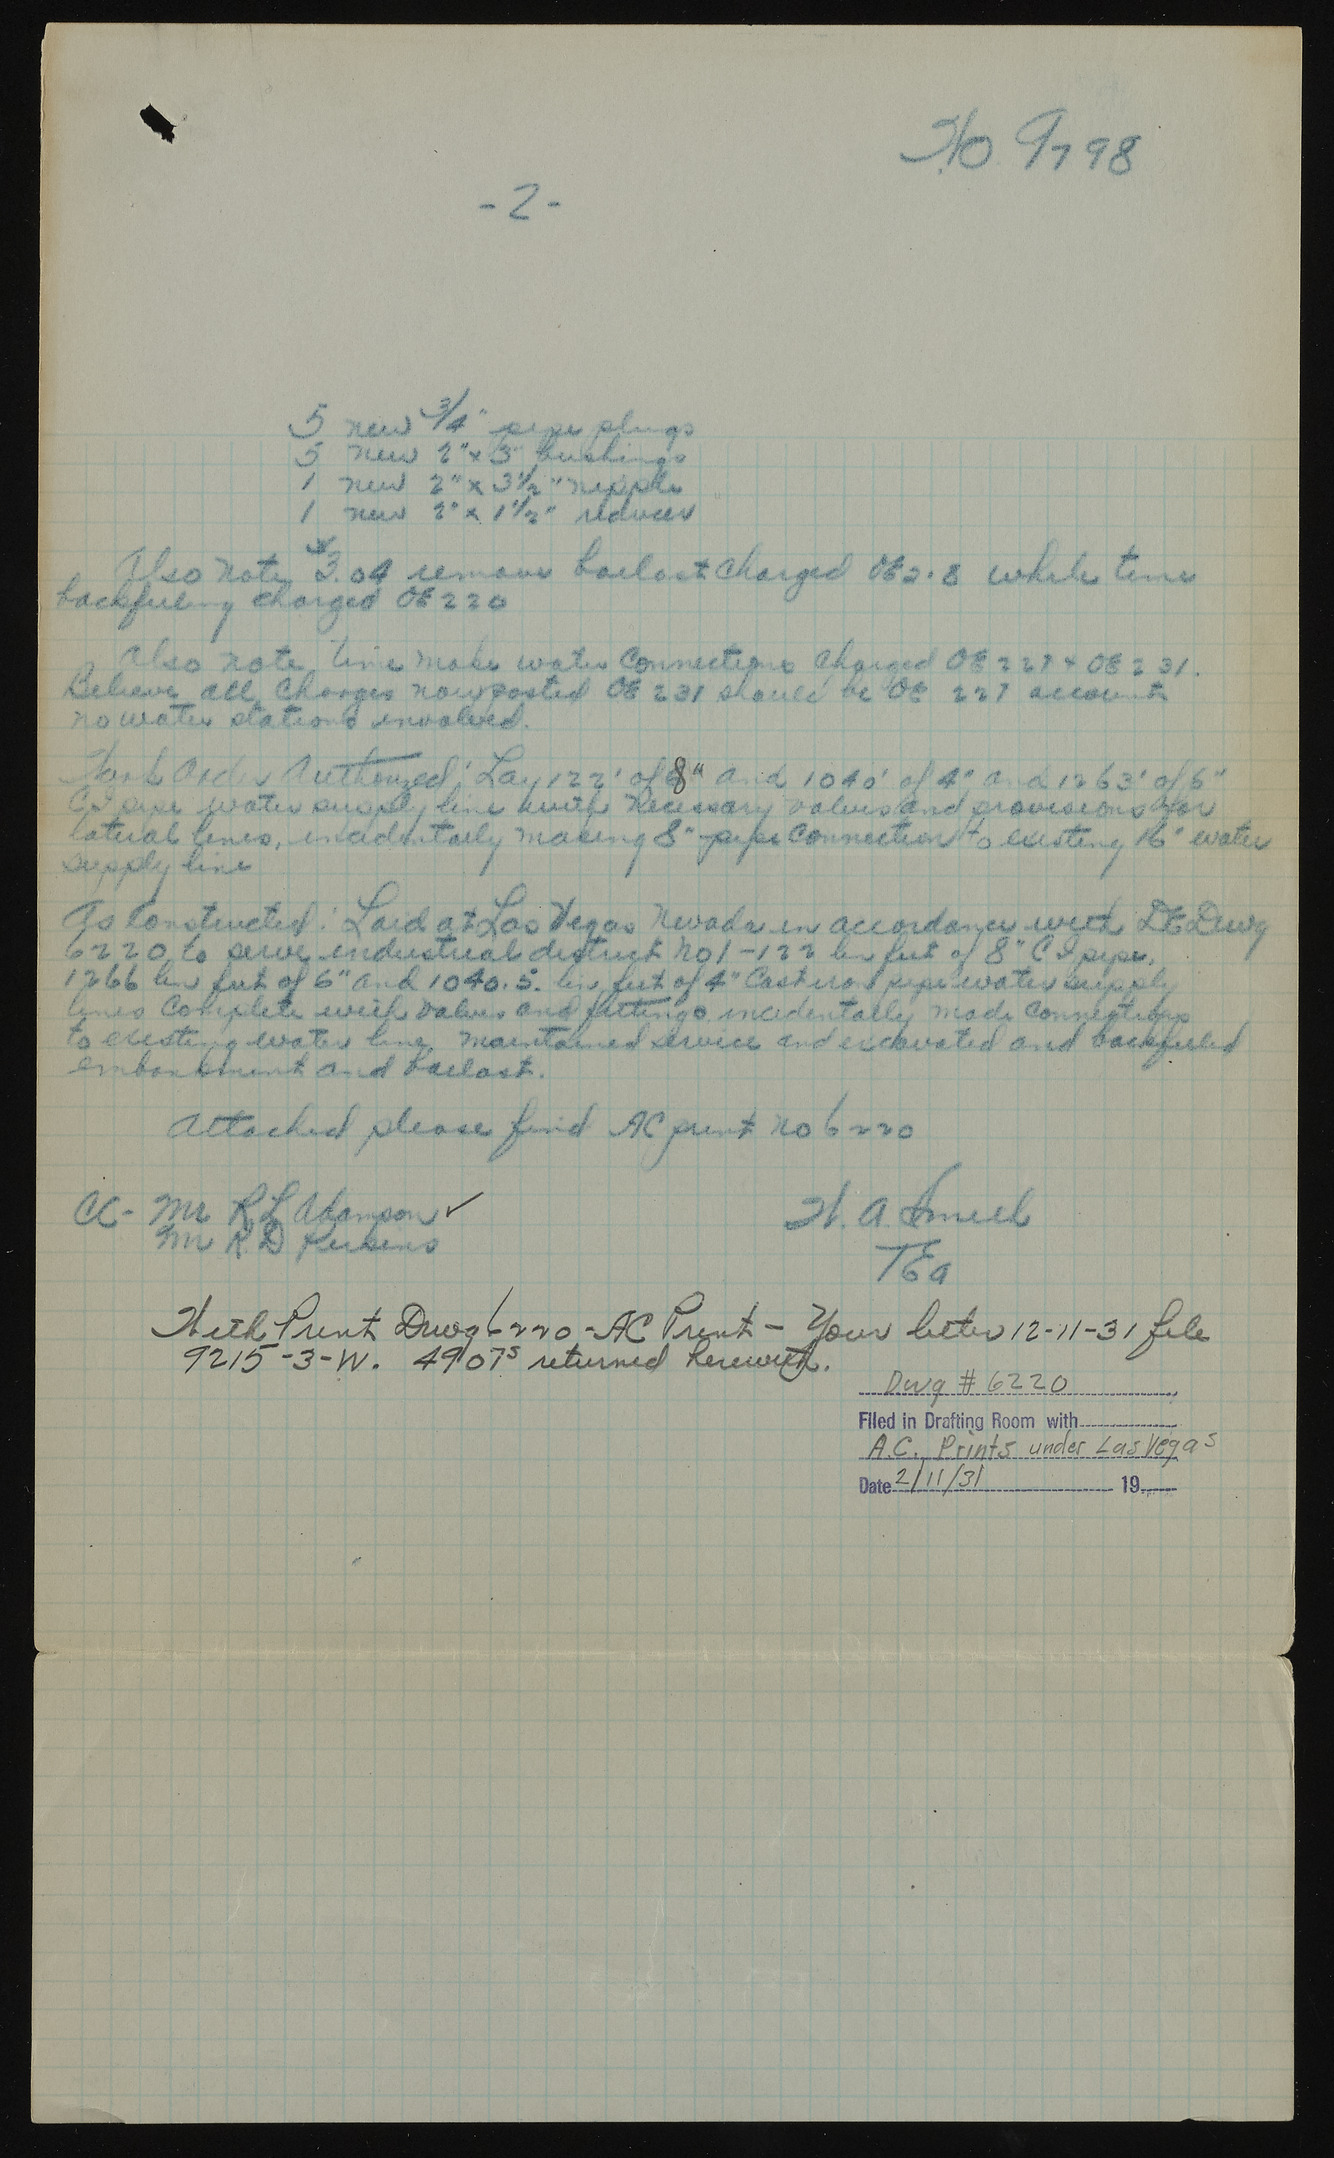 WO 9798
- 2 -
5 new 3/4" pipe plugs
5 new 2" x 3" bushings
1 new 2" x 3 1/2" nipple
1 new 2" x 1 1/2" reducer
Also note 3.04 remove ballast charged OE 2.8 while time
backfilling charged OE 220
Also note time make water connections charged OE 227 + OE 231.
Believe all charges now posted OE 231 should be OE 227 account
no water stations involved.
Work Order Authorized: Lay 122' of 8" and 1040' of 4" and 1263' of 6"
CI pipe water supply line with necessary valves and provisions for
lateral lines, incidentally making 8" pipe connection to existing 16" water
supply line
As Constructed: Laid at Las Vegas Nevada in accordance with DE Dwg
6220 to serve industrial district No 1 - 122 lin feet of 8" CI pipe,
1266 lin feet of 6" and 1040.5 lin feet of 4" Cast iron pipe water supply
lines complete with valves and fittings incidentally made connections
to existing water line maintained service and excavated and backfilled
embankment and ballast.
Attached please find AC print No 6220
CC - Mr R L Adamson ✓
Mr R D Perkins
W. A. Smell
TEA
With Print Dwg 6220 - AC Print - Your letter 12-11-31 file
9215-3-W. 4907s returned herewith.
Dwg # 6220
Filed in Drafting Room with
A.C. Prints under Las Vegas
Date 2/11/31 19